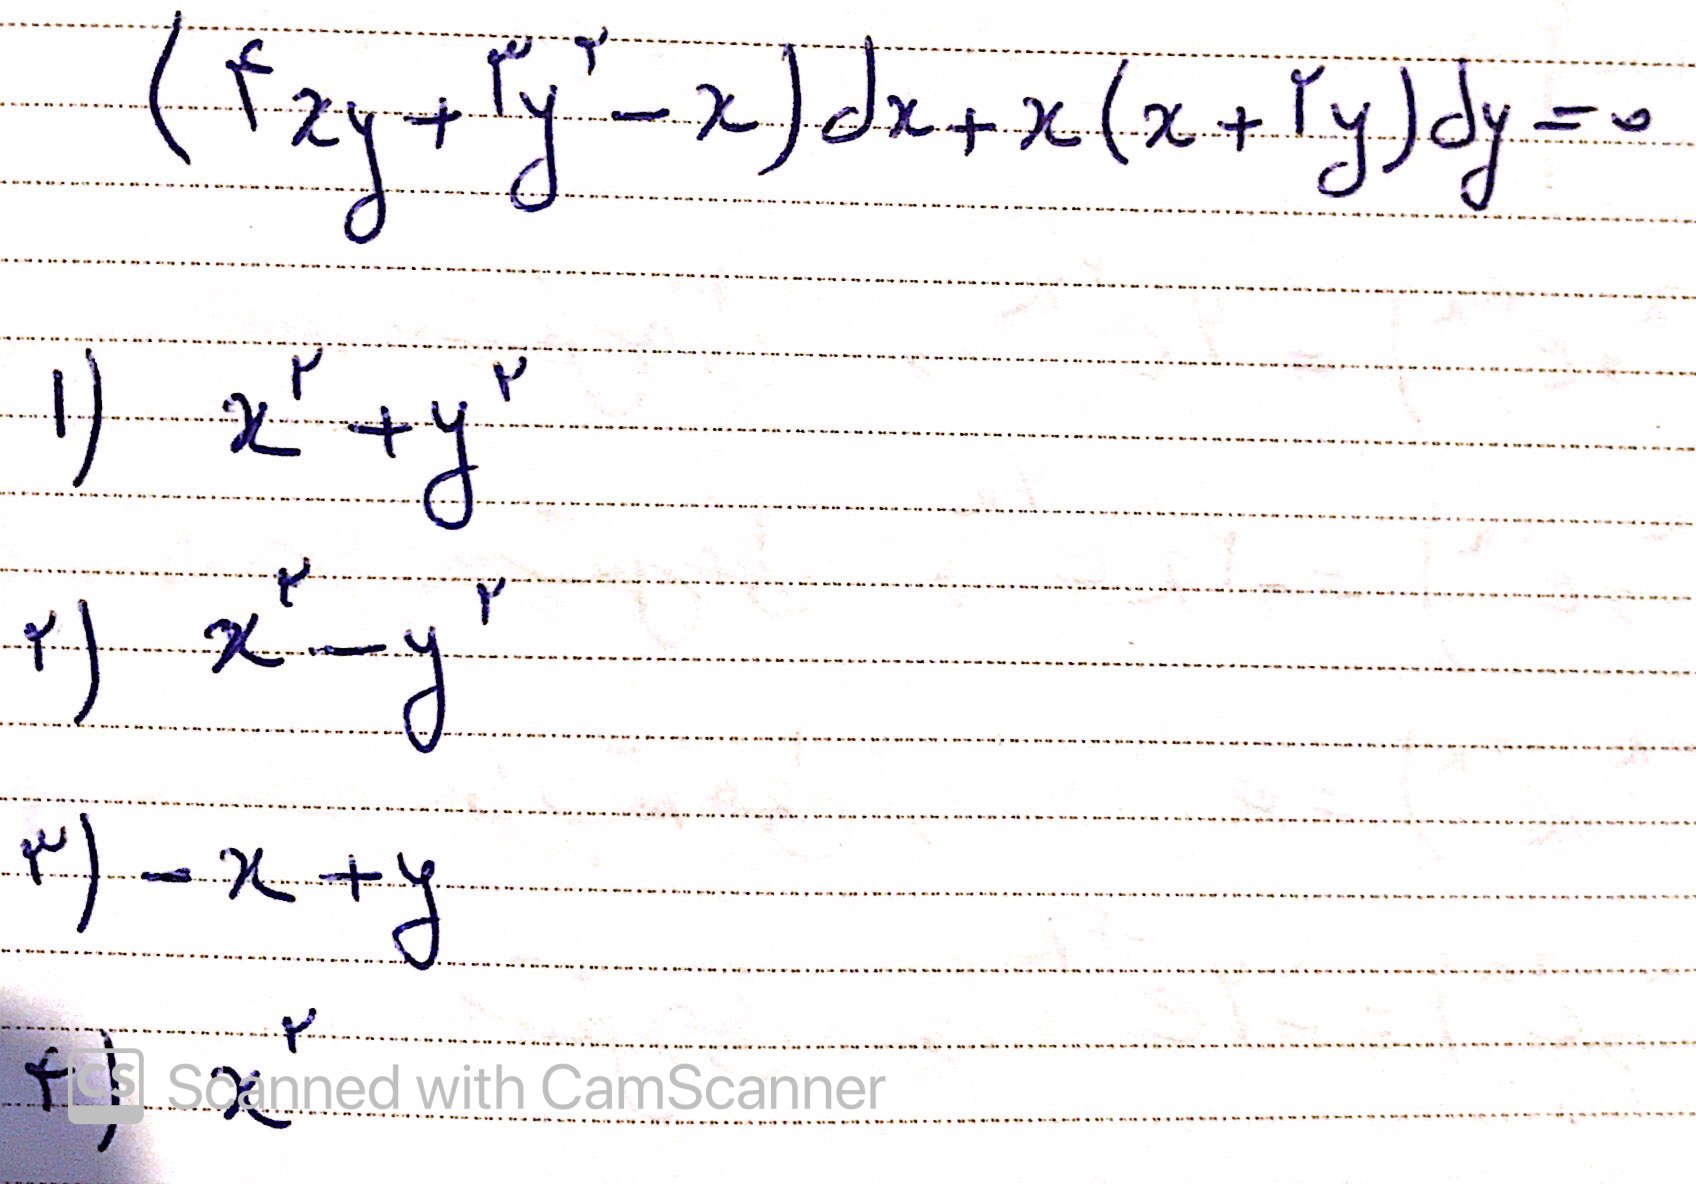 (۴xy + ۳y² - x) dx + x (x + ۲y) dy = 0
۱) x² + y²
۲) x² - y²
۳) - x + y
۴) x²
CS Scanned with CamScanner